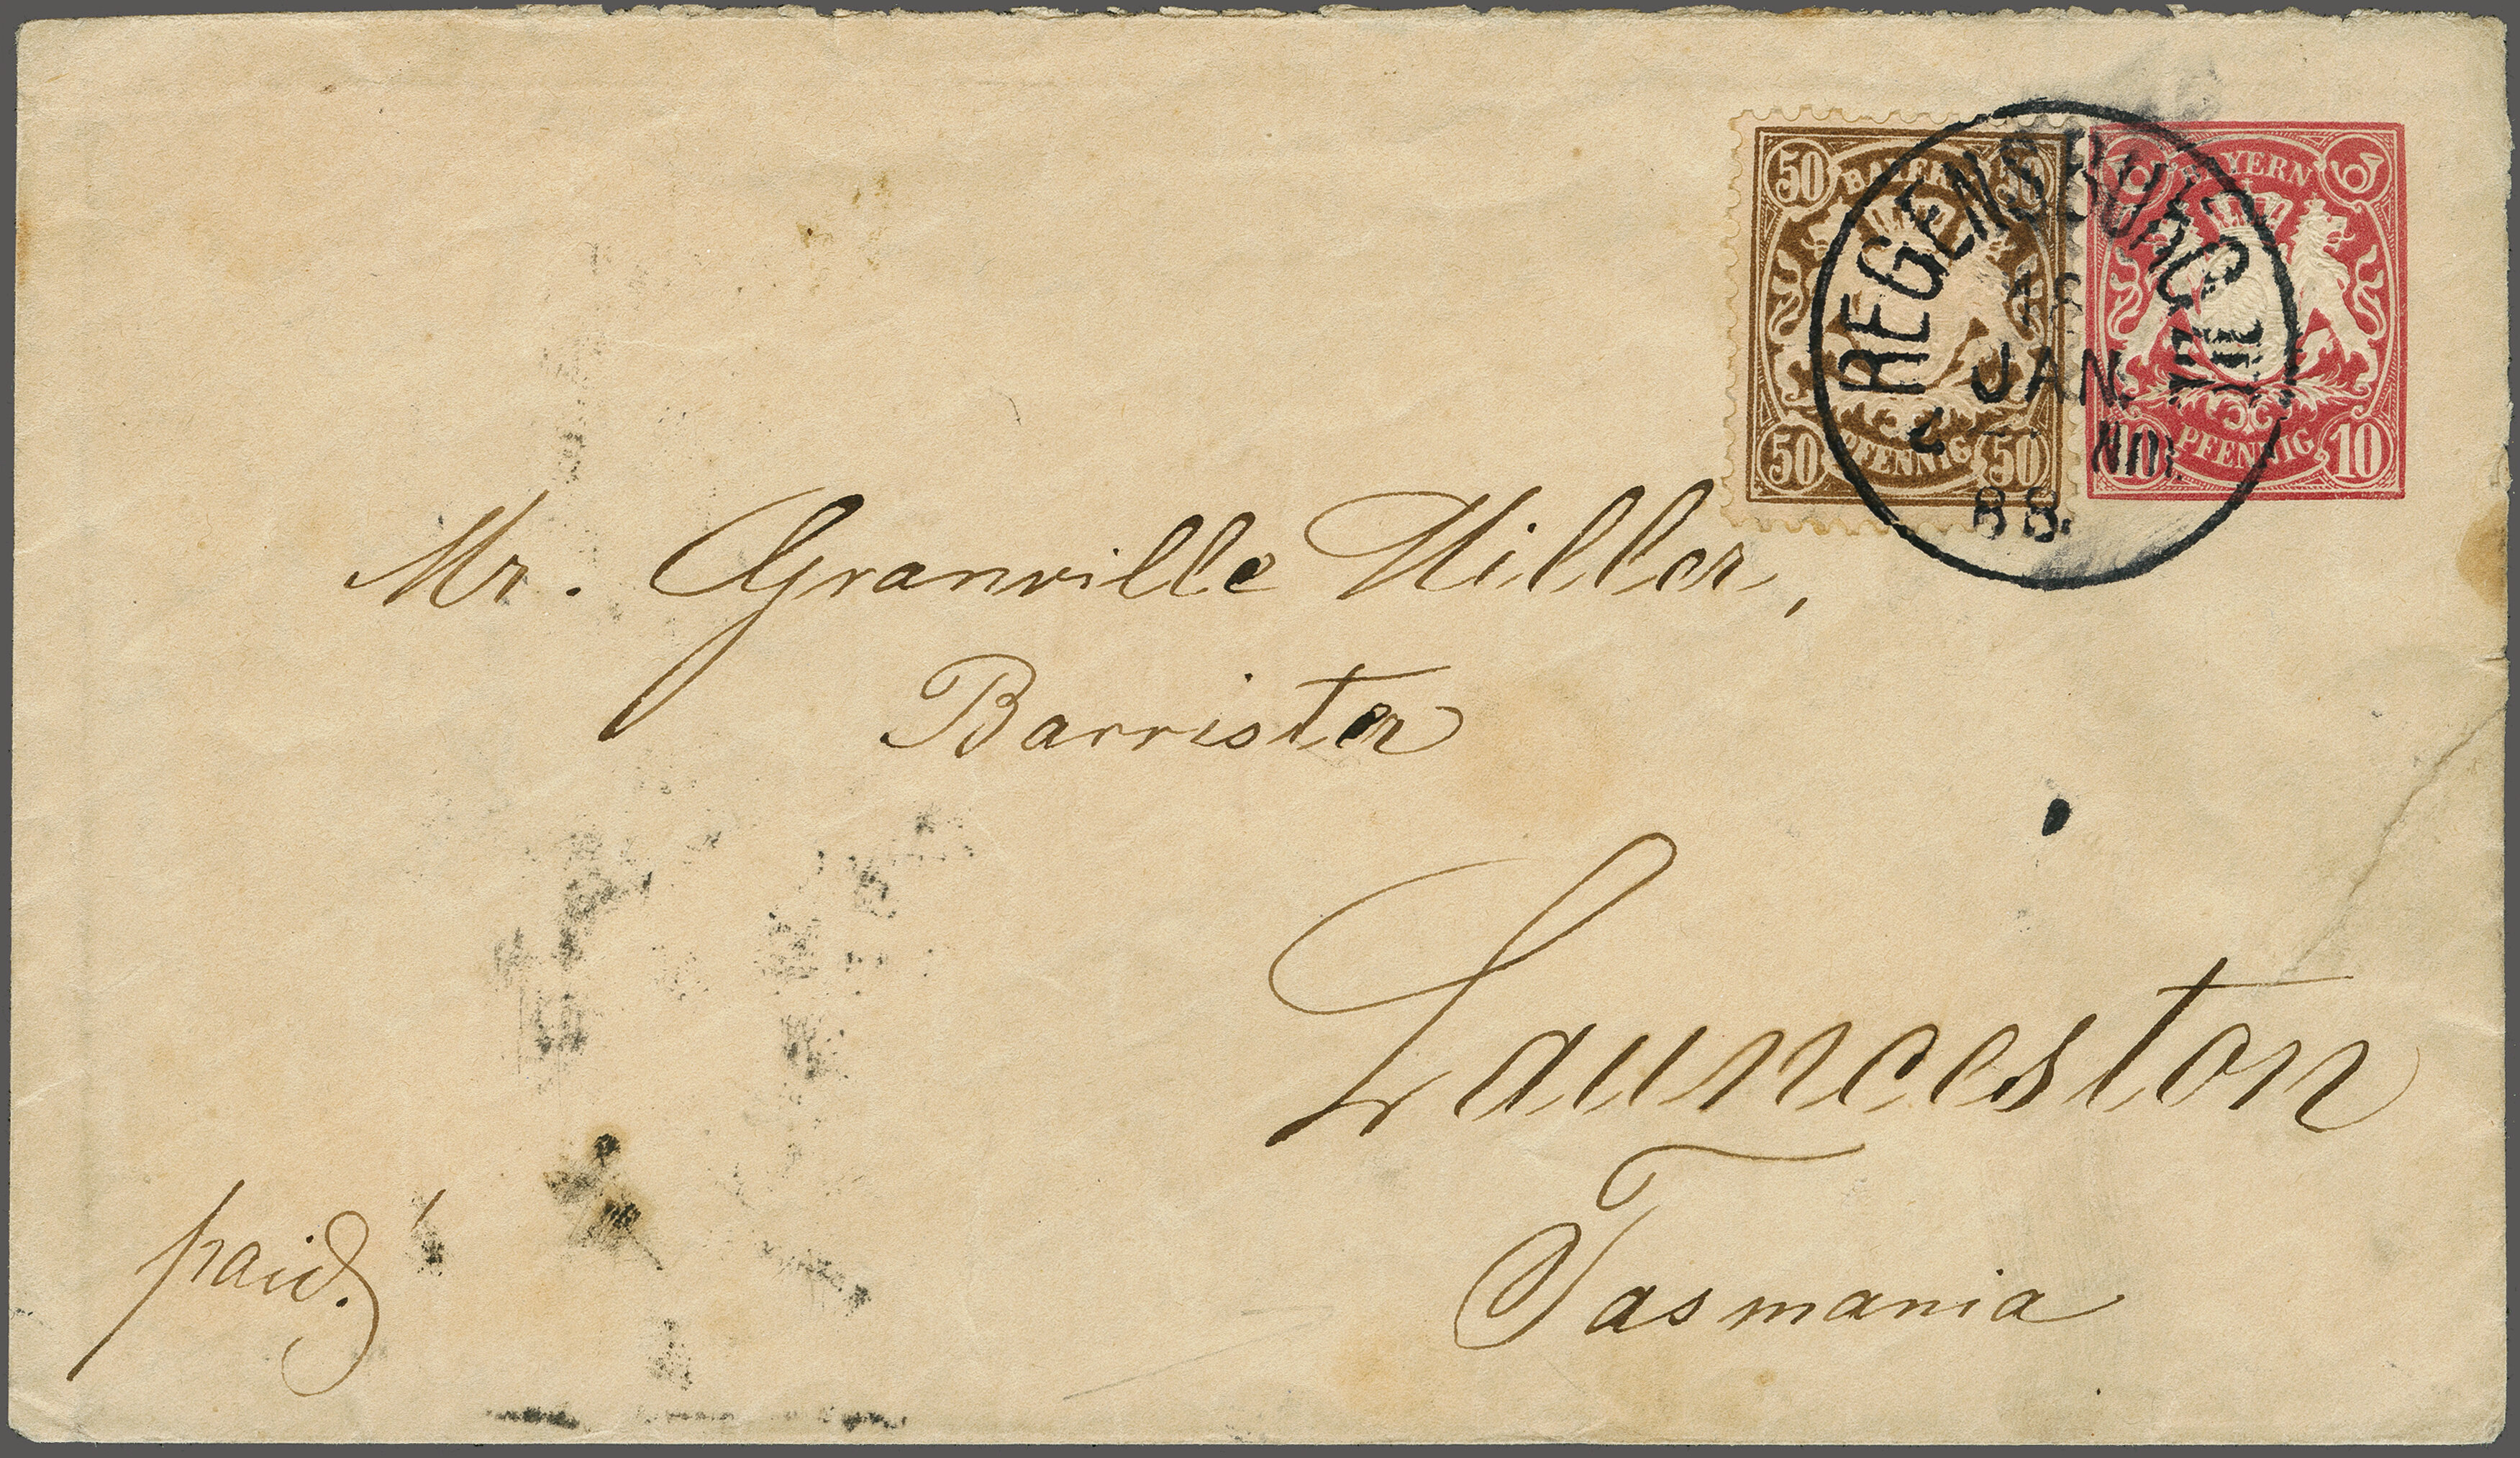 50 BAYERN 50
50 PFENNIG 50
BAYERN
10 PFENNIG 10
REGENSBURG III
18
JAN.
Nm.
88.
Mr. Granville Miller,
Barrister
Launceston
Tasmania
paid.